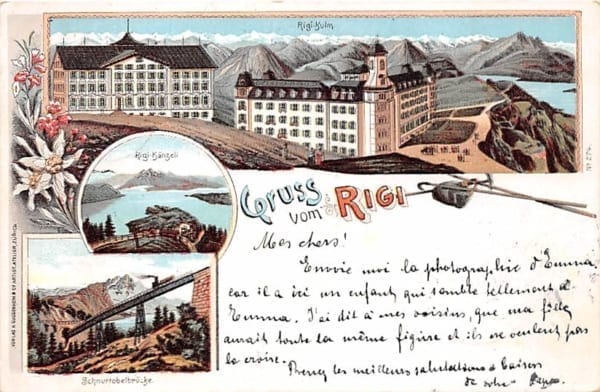 Rigi-Kulm
Nº 274
Rigi-Känzeli
Gruss
vom RIGI
Schnurtobelbrücke.
Mes chers!
Envoie moi la photographie d'Emma
car il a ici un enfant qui semble tellement d'
Emma. J'ai dit à mes voisins, que ma fille
aurait toute la même figure et ils ne veulent pas
la croire.
Prenez les meilleurs salutations & baisers
de votre